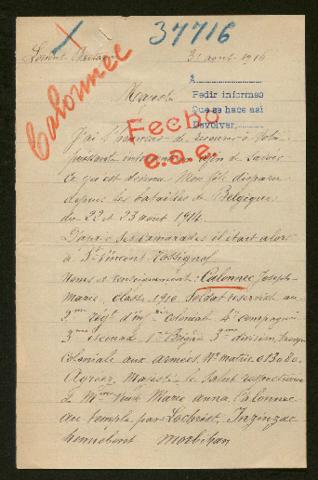 37716
Calonnec
31 août 1916
A
Pedir informes
Que se hace asi
Devolver
Fecho
e.a.e.
J'ai l'honneur de recourir à Votre
puissante afin de savoir
ce qui est devenu Mon fils disparu
depuis les batailles de Belgique
du 22 et 23 août 1914.
D'après ses camarades il était alors
à St Vincent Rossignol
Noms et renseignements: Calonnec Joseph
Marie, classe 1910 Soldat réserviste au
2me régt d'inf coloniale 4e compagnie
3me escouade 1re Brigade 3me division, troupes
coloniale aux armées, No matric 013080.
Agréez, Majesté le salut respectueux
Mme Veuve Marie Anna Calonnec
au temple par Lochrist, Inzinzac
hennebont Morbihan